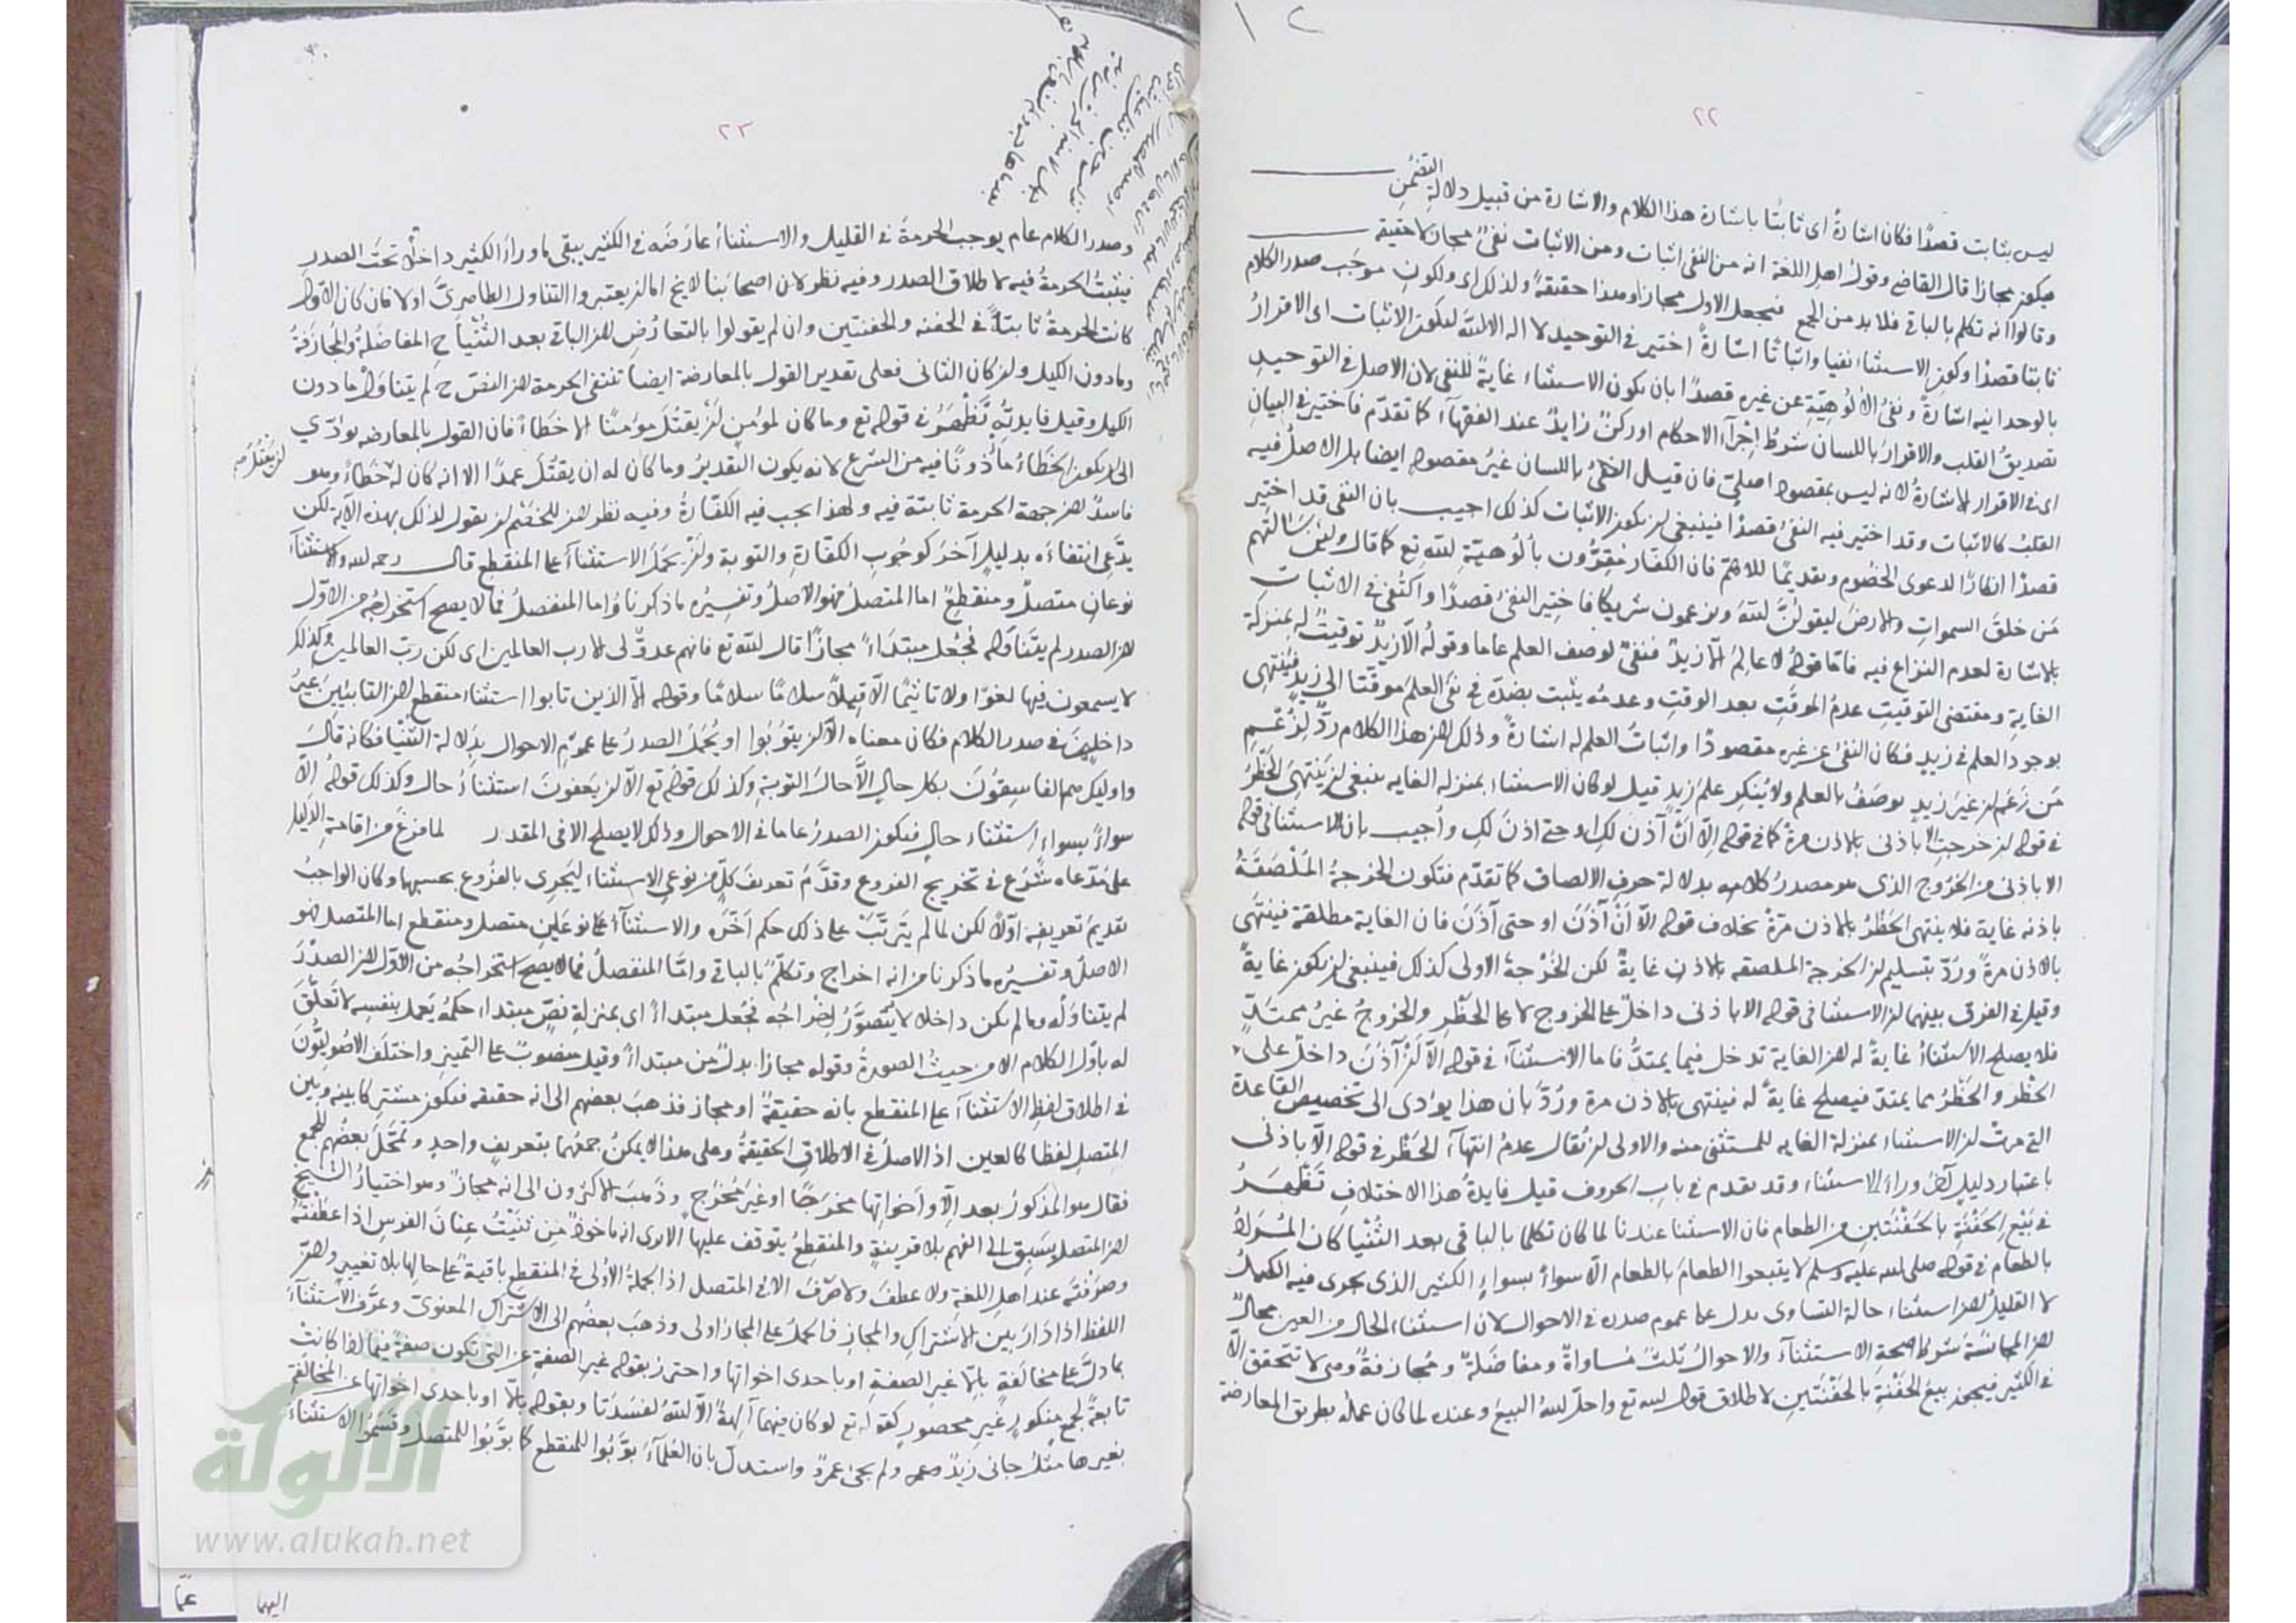 ١٢
٢٢
ليس بثابت قصدًا فكان اشارةً اى ثابتًا باشارة هذا الكلام والاشارة من قبيل دلالة التضمن
فيكون مجازا قال القاضى وقول اهل اللغة انه من النفى اثبات ومن الاثبات نفى مجاز لا حقيقه
وقالوا انه تكلم بالباقى فلا بد من الجمع فيجعل الاول مجازا وهذا حقيقةً ولذلك اى ولكون موجب صدر الكلام
ثابتا قصدًا وكون الاستثناء نفيا واثباتا اشارةً اختير فى التوحيد لا اله الا الله ليكون الاثبات اى الاقرارُ
بالوحدانيه اشارةً ونفىُ الألُوهيّةِ عن غيره قصدًا بان يكون الاستثناء غايةً للنفى لان الاصل فى التوحيد
تصديقُ القلب والاقرارُ باللسان شرطُ إجْرَآء الاحكام او ركنٌ زايدٌ عند الفقهآء كما تقدّم فاختير فى البيانِ
اى فى الاقرار الاشارةُ لانه ليس بمقصود اصلىّ فان قيل النفىُ باللسان غيرُ مقصود ايضا بل الاصل فيه
القلبُ كالاثبات وقد اختير فيه النفىُ قصدًا فينبغى ان يكون الاثبات كذلك اجيب بان النفى قد اختير
قصدًا انكارًا لدعوى الخصُوم وتقديمًا للاهمّ فان الكفّار مُقِرُّون بألُوهيّةِ الله تع كما قال ولئن سَالتَهم
مَن خلقَ السمواتِ والارضَ ليقولنَّ اللهُ ويزعمون شريكا فاختِير النفىُ قصدًا واكتُفى فى الاثبات
بالاشارة لعدم النزاع فيه فامّا قولهُ لا عالِمَ الاّ زيدٌ فنفىٌ لوصف العلم عاما وقولهُ الاّ زيدٌ توقيتٌ له بمنزلة
الغايةِ ومقتضى التوقيتِ عدمُ الموقّتِ بعد الوقتِ وعدمُه يثبت بضدّه فى نفى العلمِ موقّتا الى زيدٍ فيَنتهى
بوجود العلم فى زيدٍ فكان النفىُ عن غيرِه مقصودًا واثباتُ العلم له اشارةً وذلك لان هذا الكلام ردٌّ لزَعْمِ
مَن زَعَم ان غيرَ زيدٍ يوصَفُ بالعلم ولا يُنكِر علمَ زيدٍ قيل لو كان الاستثناء بمنزله الغايه ينبغى ان يَنتهىَ الحَظْرُ
فى قوله ان خرجتِ الا باذنى بالاذن مرةً كما فى قوله اِلاّ انْ آذن لكِ او حتى اذنَ لكِ وأُجيب بان الاستثنا فى قوله
الا باذنى من الخُرُوج الذى هو مصدرُ كلامه بدلالة حرف الالصاق كما تقدّم فتكون الخرجةُ المُلْصَقَةُ
باذنه غاية فلا ينتهى الحَظْرُ بالاذن مرّةً بخلاف قوله الاّ انْ آذَنَ او حتى آذَنَ فان الغاية مطلقة فينتهى
بالاذن مرةً ورُدّ بتسليم ان الخرجة الملصقه بالاذن غايةٌ لكن الخَرْجةَ الاولى كذلك فينبغى ان يكون غايةً
وقيل فى الفرق بينهما ان الاستثنا فى قوله الا باذنى داخلٌ على الخروج لا على الحَظْر والخروجُ غيرُ ممتدٍّ
فلا يصلح الاستثناءُ غايةً له لان الغاية تدخل فيما يمتدُّ فاما الاستثنآء فى قوله الاّ انْ آذَنَ داخلٌ على
الحَظْر والحَظْرُ مما يمتدّ فيصلح غايةً له فينتهى بالاذن مرة ورُدّ بان هذا يودى الى تخصيص القاعدة
التى مرتْ ان الاستثناء بمنزلة الغايه للمستثنى منه والاولى ان يُقال عدمُ انتهآء الحَظْر فى قوله الاّ باذنى
باعتبار دليلٍ آخر وراءَ الاستثناء وقد تقدم فى باب الحروف قيل فايدةُ هذا الاختلافِ تَظْهَرُ
فى بَيْع الحَفْنَةِ بالحَفْنَتَينِ من الطعام فان الاستثنا عندنا لما كان تكلما بالباقى بعد الثُنْيا كان المُرَادُ
بالطعام فى قوله صلى الله عليه وسلم لا تبيعوا الطعامَ بالطعام الاّ سواءً بسواءٍ الكثير الذى يجرى فيه الكيلُ
لا القليلُ لان استثناء حالة التساوى يدل على عموم صدره فى الاحوال لان استثناء الحال من العين محالٌ
لان المجانسَة شرطُ صحة الاستثنآء والاحوالُ ثلثٌ مُساواةٌ ومفاضَلةٌ ومُجازفةٌ وهى لا تتحقق الاّ
فى الكثير فيجوز بيعُ الحَفْنَةِ بالحَفْنَتَينِ لاطلاق قول الله تع واحلّ اللهُ البيعَ وعنده لما كان عملُه بطريق المعارضة
٢٣
وصدر الكلام عام يوجب الحرمةَ فى القليل والاستثناءُ عارَضَه فى الكثير يبقى ما وراءَ الكثير داخلاً تحتَ الصدرِ
فيثبتُ الحرمةُ فيه لاطلاق الصدر وفيه نظر لان اصحابنا
كانت الحرمةُ ثابتةً فى الحفنه والحفنتين وان لم يقولوا بالتعارُض لان الباقى بعد الثُنْيا ح المفاضَلةُ والمُجازفةُ
وما دون الكيل وان كان الثانى فعلى تقدير القول بالمعارضة ايضا تنتفى الحرمة لان النصّ ح لم يتناوَل ما دون
الكيل وقيل فايدتُه تَظْهَرُ فى قوله تع وما كان لمؤمنٍ انْ يقتُلَ مؤمنًا الا خَطَاءً فان القول بالمعارضه يؤدّى
الى ان يكون الخَطَاءُ مأذُونًا فيه من الشرع لانه يكون التقديرُ وما كان له ان يقتُلَ عمدًا الا انه كان له خَطَاءً وهو
ان يَقْتُلَ صح
فاسدٌ لان جهة الحرمة ثابتة فيه ولهذا يجب فيه الكفّارةُ وفيه نظر لان للخصْم ان يقول لذلك بهذه الآية لكن
يدَّعى انتفاءَه بدليلٍ آخرَ كوجُوبِ الكفّارةِ والتوبة وانْ يحمَلَ الاستثناءُ على المنقطع قال رحمه الله والاستثنآء
نوعان متصلٌ ومنقطعٌ اما المتصلُ فهو الاصلُ وتفسيرُه ما ذكرنا واما المنفصلُ فما لا يصح استخراجُه من الاوّل
لان الصدر لم يتناوله فجُعل مبتدَاءً مجازًا قال الله تع فانهم عدوٌّ لى الا رب العالمين اى لكن ربّ العالمين وكذلك
لا يسمعون فيها لغوًا ولا تاثيمًا الاّ قيلاً سلامًا سلامًا وقوله الاّ الذين تابوا استثناء منقطع لان التائبينَ غيرُ
داخلينَ فى صدر الكلام فكان معناه الاّ ان يتُوبُوا او يُحمَلُ الصدرُ على عموم الاحوال بدَلالة الثُنْيا فكانه قالَ
واوليك هم الفاسِقُونَ بكل حالٍ الاَّ حالَ التوبةِ وكذلك قولهُ تع الاّ ان يَعفونَ استثناءُ حال وكذلك قولهُ اِلاّ
سواءً بسواءٍ استثناء حالٍ فيكون الصدرُ عاما فى الاحوال وذلك لا يصلح الا فى المقدر لما فرغَ من اقامةِ الدليل
على مُدّعاه شَرَع فى تخريج الفروع وقدَّمُ تعريفَ كلٍّ من نوعى الاستثناء ليَجرِى بالفُرُوع بحسبها وكان الواجبُ
تقديمَ تعريفِه اوّلاً لكن لما لم يترتّبْ على ذلك حكم اَخّرَه والاستثنآءُ على نوعَينِ متصل ومنقطع اما المتصل فهو
الاصلُ وتفسيرُه ما ذكرنا من انه اخراج وتكلّمٌ بالباقى وامّا المنفصلُ فما لا يصح استخراجُه من الاوّل لان الصدْرَ
لم يتناوَلْه وما لم يكن داخلا لا يُتَصوَّرُ اِخْراجُه فجُعل مبتداءً اى بمنزلةِ نصٍّ مبتداء حكمُه يَعمل بنفسه لا تَعلُّقَ
له باوّل الكلام الا من حيثُ الصورةُ وقوله مجازا بدلٌ من مبتداءً وقيل منصوبٌ على التمييز واختلف الاصُوليُّونَ
فى اطلاق لفظِ الاستثنآء على المنقطع بانه حقيقةٌ او مجاز فذهبَ بعضهم الى انه حقيقه فيكون مشتركا بينه وبين
المتصلِ لفظا كالعين اذ الاصلُ فى الاطلاقِ الحقيقةُ وعلى هذا لا يمكنُ جمعُهما بتعريفٍ واحدٍ وتمحَّلَ بعضُهم للجمع
فقال هو المذكورُ بعد الاّ واَخواتِها مخرَجًا او غيرَ مُخرَجٍ وذهبَ الاكثرون الى انه مجازٌ وهو اختيارُ الشيخ
لان المتصل يسبِق الى الفهم بلا قرينةٍ والمنقطعُ يتوقف عليها الا يرى انه ماخوذٌ من ثنَيْتُ عِنانَ الفرسِ اذا عطَفْتَهُ
وصرَفْتَه عند اهل اللغة ولا عطفَ ولا صَرْفَ الا فى المتصل اذ الجملةُ الاُولى فى المنقطع باقيةٌ على حالها بلا تغييرٍ ولان
اللفظ اذا دَارَ بين الاشتراكِ والمجازِ فالحملُ على المجاز اولى وذهبَ بعضُهم الى الاشتراك المعنوىّ وعرَّفَ الاستثناءَ
بما دلّ على مخالَفةٍ بالاّ غيرِ الصفةِ او باحدى اخواتها واحترز بقوله غيرِ الصفةِ عن التى تكون صفةً فيما اذا كانتْ
تابعةً لجمعٍ منكورٍ غيرِ محصورٍ كقوله تع لو كان فيهما آلهةٌ الاّ اللهُ لفسَدَتا وبقوله بالاّ او باحدى اخواتها عن المخالَفةِ
بغيرها مثلُ جانى زيدٌ ولم يجئ عمروٌ واستدلّ بان العُلماءَ بوّبُوا للمنقطع كما بوّبُوا للمتصل وقسَمُوا الاستثناءَ
اليهما
عمّا
الألوكة
www.alukah.net